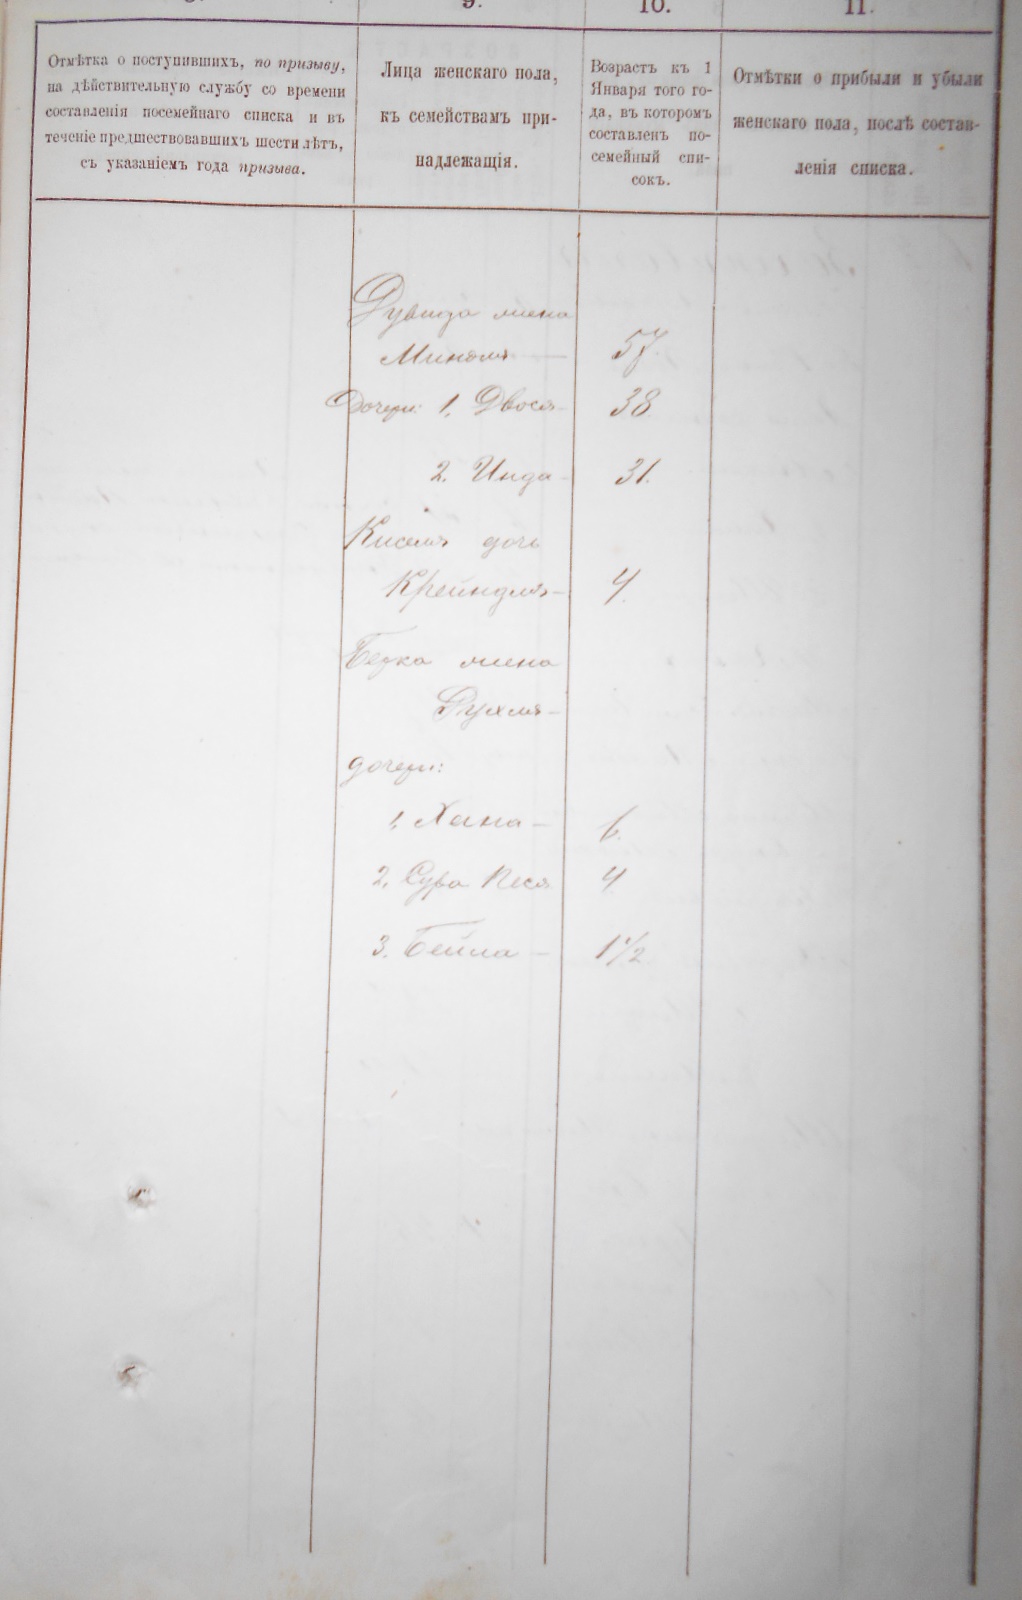 9.
10.
11.
Отмѣтка о поступившихъ, по призыву,
на дѣйствительную службу со времени
составленія посемейнаго списка и въ
теченіе предшествовавшихъ шести лѣтъ,
съ указаніемъ года призыва.
Лица женскаго пола,
къ семействамъ при-
надлежащія.
Возрастъ къ 1
Января того го-
да, въ которомъ
составленъ по-
семейный спи-
сокъ.
Отмѣтки о прибыли и убыли
женскаго пола, послѣ состав-
ленія списка.
Дувида жена
57.
Дочери: 1. Двося 38
2. Инда 31.
Киселя дочь
Крейндля 4.
Берка жена
Рухля
дочери:
1. Хана 6.
2. Сура Песя 4
3. Бейла 1 1/2